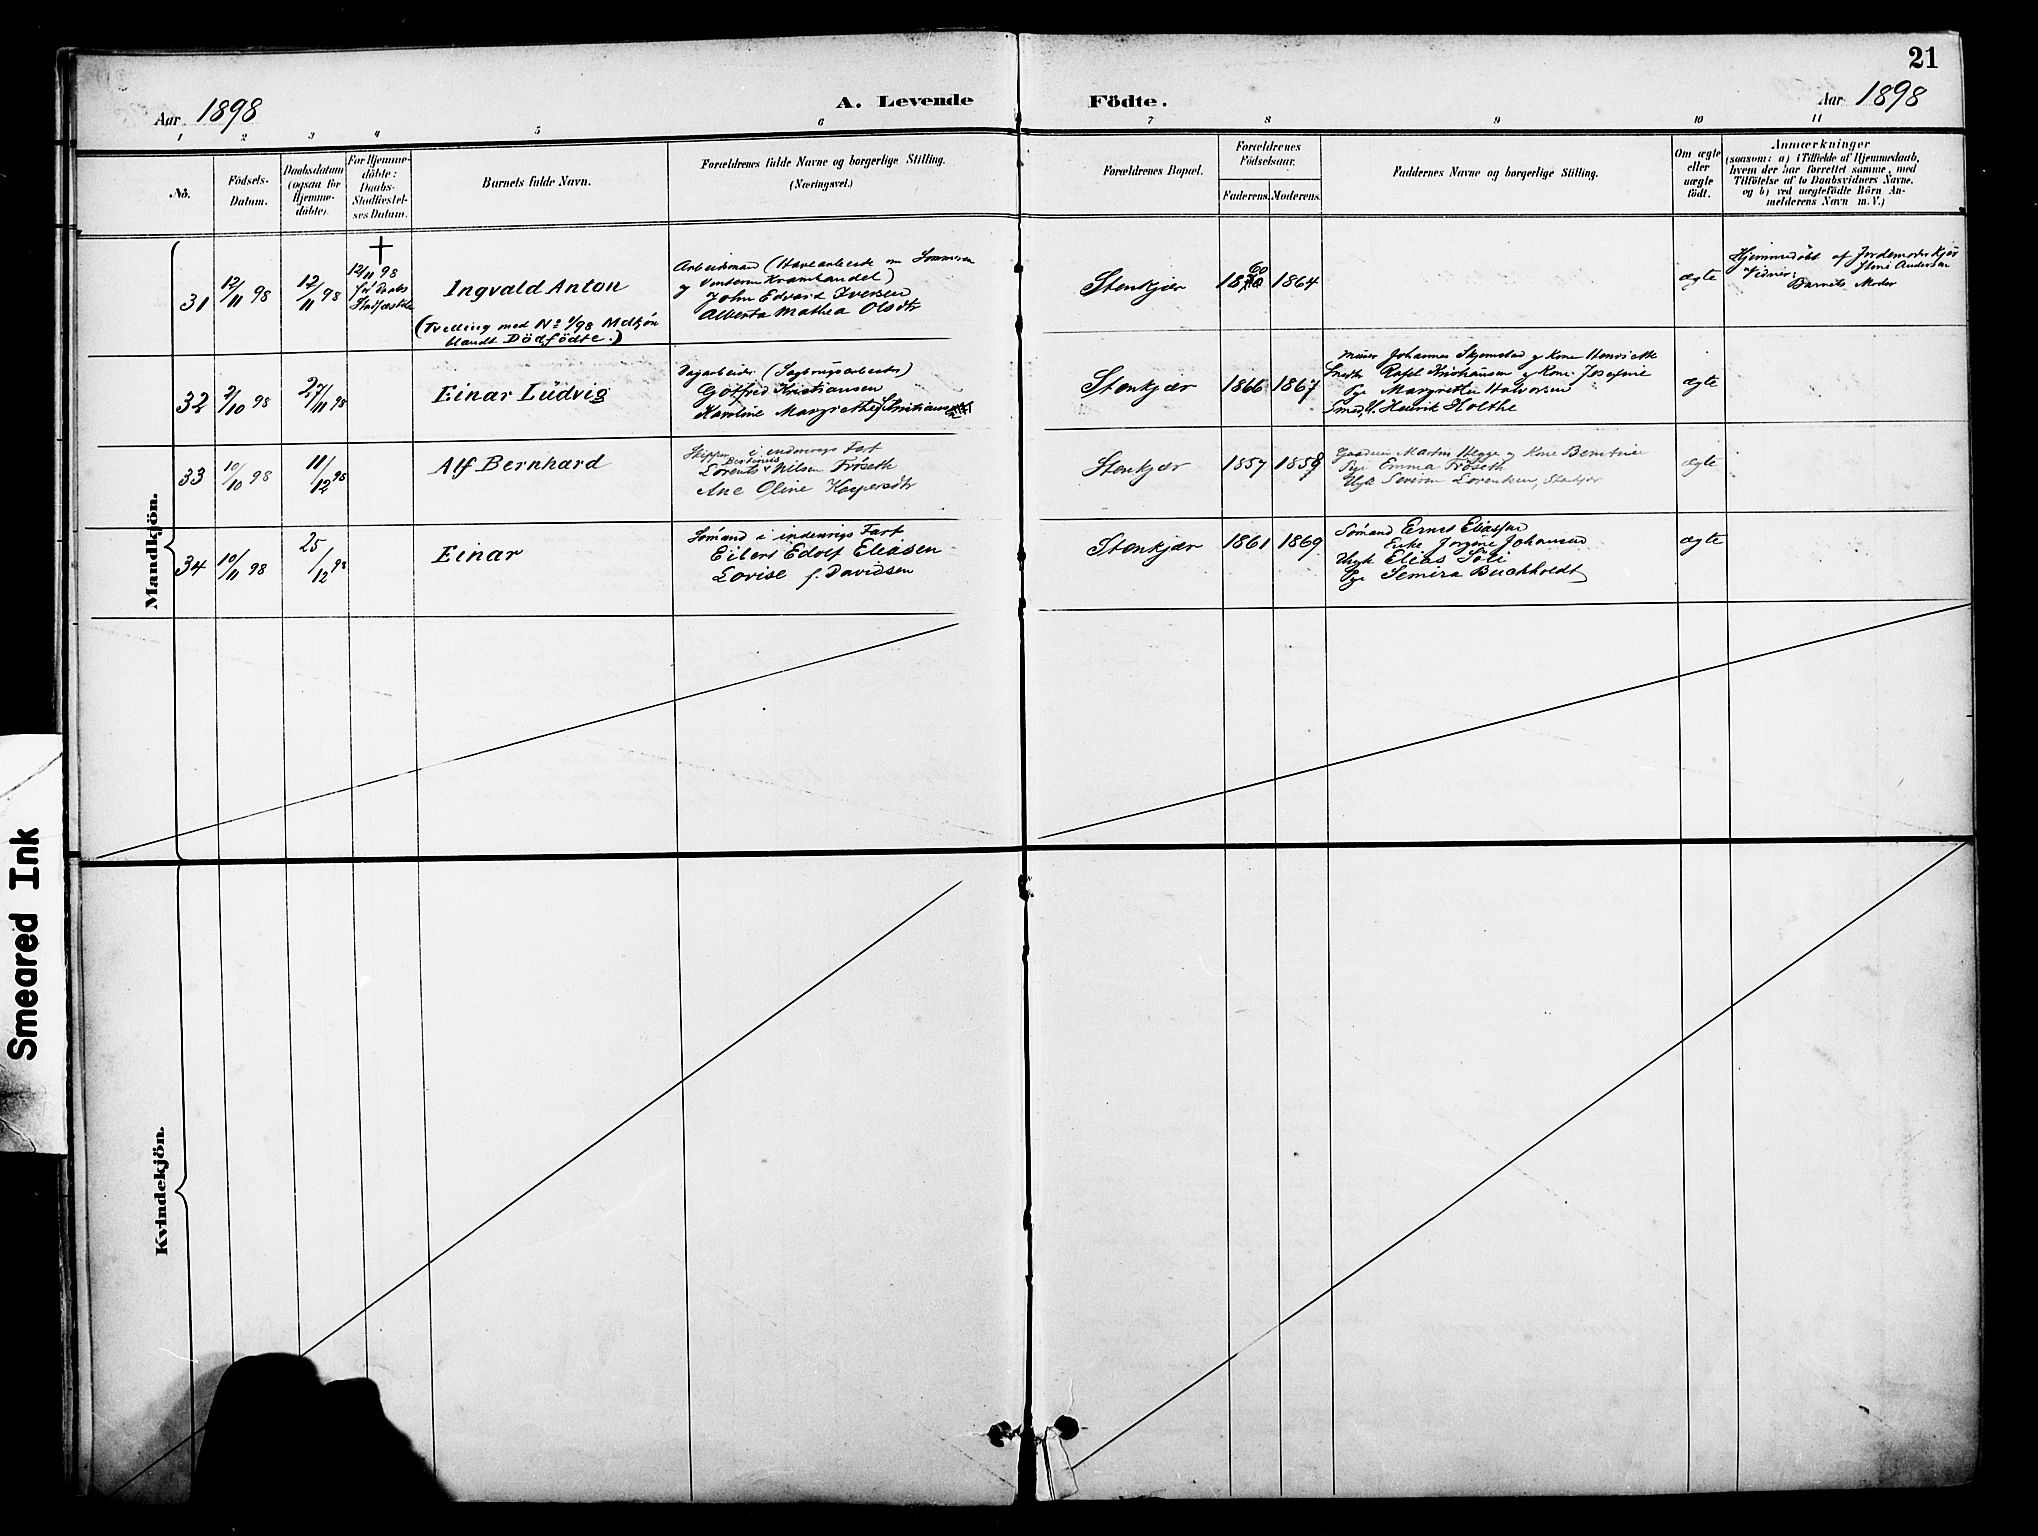 21
Aar 1898
A. Levende Födte.
Aar 1898
1 2 3 4 5 6 7 8 9 10 11
No.
Födsels-
Datum.
Daabsdatum
(ogsaa for
Hjemme-
döbte).
For Hjemme-
döbte:
Daabs-
Stadfæstel-
ses Datum.
Barnets fulde Navn.
Forældrenes fulde Navne og borgerlige Stilling.
(Næringsvei.)
Forældrenes Bopæl.
Forældrenes
Födselsaar.
Faderens. Moderens.
Faddernes Navne og borgerlige Stilling.
Om ægte
eller
uægte
født.
Anmærkninger
(saasom: a) i Tilfælde af Hjemmedaab,
hvem der har forrettet samme, med
Tilföielse af to Daabsvidners Navne,
og b) ved uægtefödte Börn An-
melderens Navn m.V.)
Mandkjön.
31
12/11 98
12/11 98
12/11 98
før Daabs
Stadfæstelse
Ingvald Anton
(Tvilling med No 1/98 Mdkjøn
blandt Dödfödte.)
Arbeidsmand (Havearbeide om Sommeren
og Vinteren Kramhandel)
John Edvard Iversen
Alberta Mathea Olsdtr
Stenkjær
60
1864
ægte
Hjemmedøbt af Jordemoder
Vidner: Andersen
Barnets Moder
32
2/10 98
27/11 98
Einar Ludvig
Dagarbeider (Sagbrugsarbeider)
Gotfred Kristiansen
Karoline Margrethe
Stenkjær
1866
1867
Murer Johannes Skjemstad og Kone Henriette
Snedk Kristiansen og Kone Josefine
Pge Margrethe Halvorsen
Smed, U. Henrik Holthe
ægte
33
10/10 98
11/12 98
Alf Bernhard
Skipper i indenrigs Fart
Lorents Nilsen Fröseth
Ane Oline Kaspersdtr
Stenkjær
1857
Martin Hegge og Kone
Pge Emma Fröseth
Ugk Severin Lorentsen, Stenkjær
ægte
34
10/11 98
25/12 98
Einar
Sömand i indenrigs Fart
Eilert Edolf Eliasen
Lovise f. Davidsen
Stenkjær
1861
1869
Sömand
Enke Jörgine Johansen
Ugk Elias Söli
Pge Semira Buchholdt
ægte
Kvindekjön.
Smeared Ink